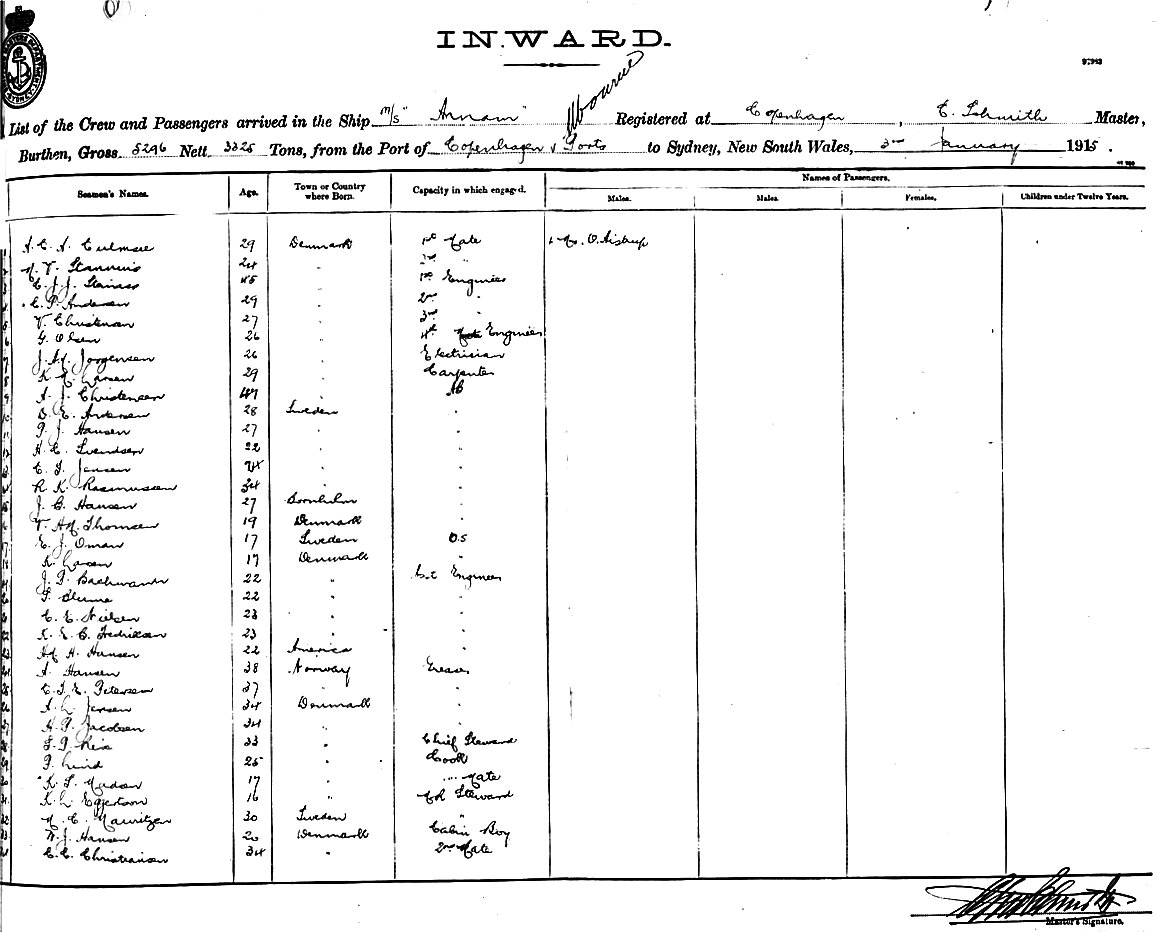 INWARD.
List of the Crew and Passengers arrived in the Ship m/s "Annam" Registered at Copenhagen, C. Schmith Master,
Burthen, Gross 5296 Nett 3325 Tons, from the Port of Copenhagen & Ports to Sydney, New South Wales, 3rd January 1915.
Seamen's Names. Age. Town or Country where Born. Capacity in which engaged. Names of Passengers.
Males. Males. Females. Children under Twelve Years.
29 Denmark 1st Mate 1 Mr. O. Aistrup
24 " 2nd "
45 " 1st Engineer
C. P. Andersen 29 " 2nd "
V. Christensen 27 " 3rd "
G. Olsen 26 " 4th Engineer
J. M. Jorgensen 26 " Electrician
K. E. Larsen 29 " Carpenter
A. J. Christensen 47 " AB
O. E. Andersen 28 Sweden "
P. J. Hansen 27 " "
H. C. Svendsen 22 " "
C. F. Jensen 24 " "
R. K. Rasmussen 34 " "
J. C. Hansen 27 Bornholm "
V. M. Thomsen 19 Denmark "
E. J. Oman 17 Sweden O.S
K. Larsen 17 Denmark "
J. P. Bachmann 22 " Engineer
F. Blume 22 " "
C. E. Nielsen 23 " "
K. E. C. Fredriksen 23 " "
M. H. Hansen 22 America "
A. Hansen 38 Norway Greaser
C. F. E. Petersen 37 " "
A. L. Jensen 34 Denmark "
H. P. Jacobsen 34 " "
33 " Chief Steward
P. Lind 25 " Cook
K. S. Madsen 17 " " Mate
K. L. Eggertson 16 " Steward
M. C. Mauritzen 30 Sweden "
W. J. Hansen 20 Denmark Cabin Boy
C. C. Christiansen 34 " 2nd Mate
Master's Signature.